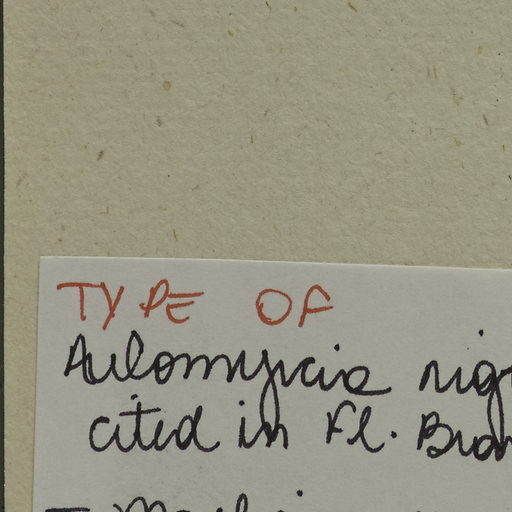 TYPE OF
Aulomyrcia rig
cited in Fl. Bra